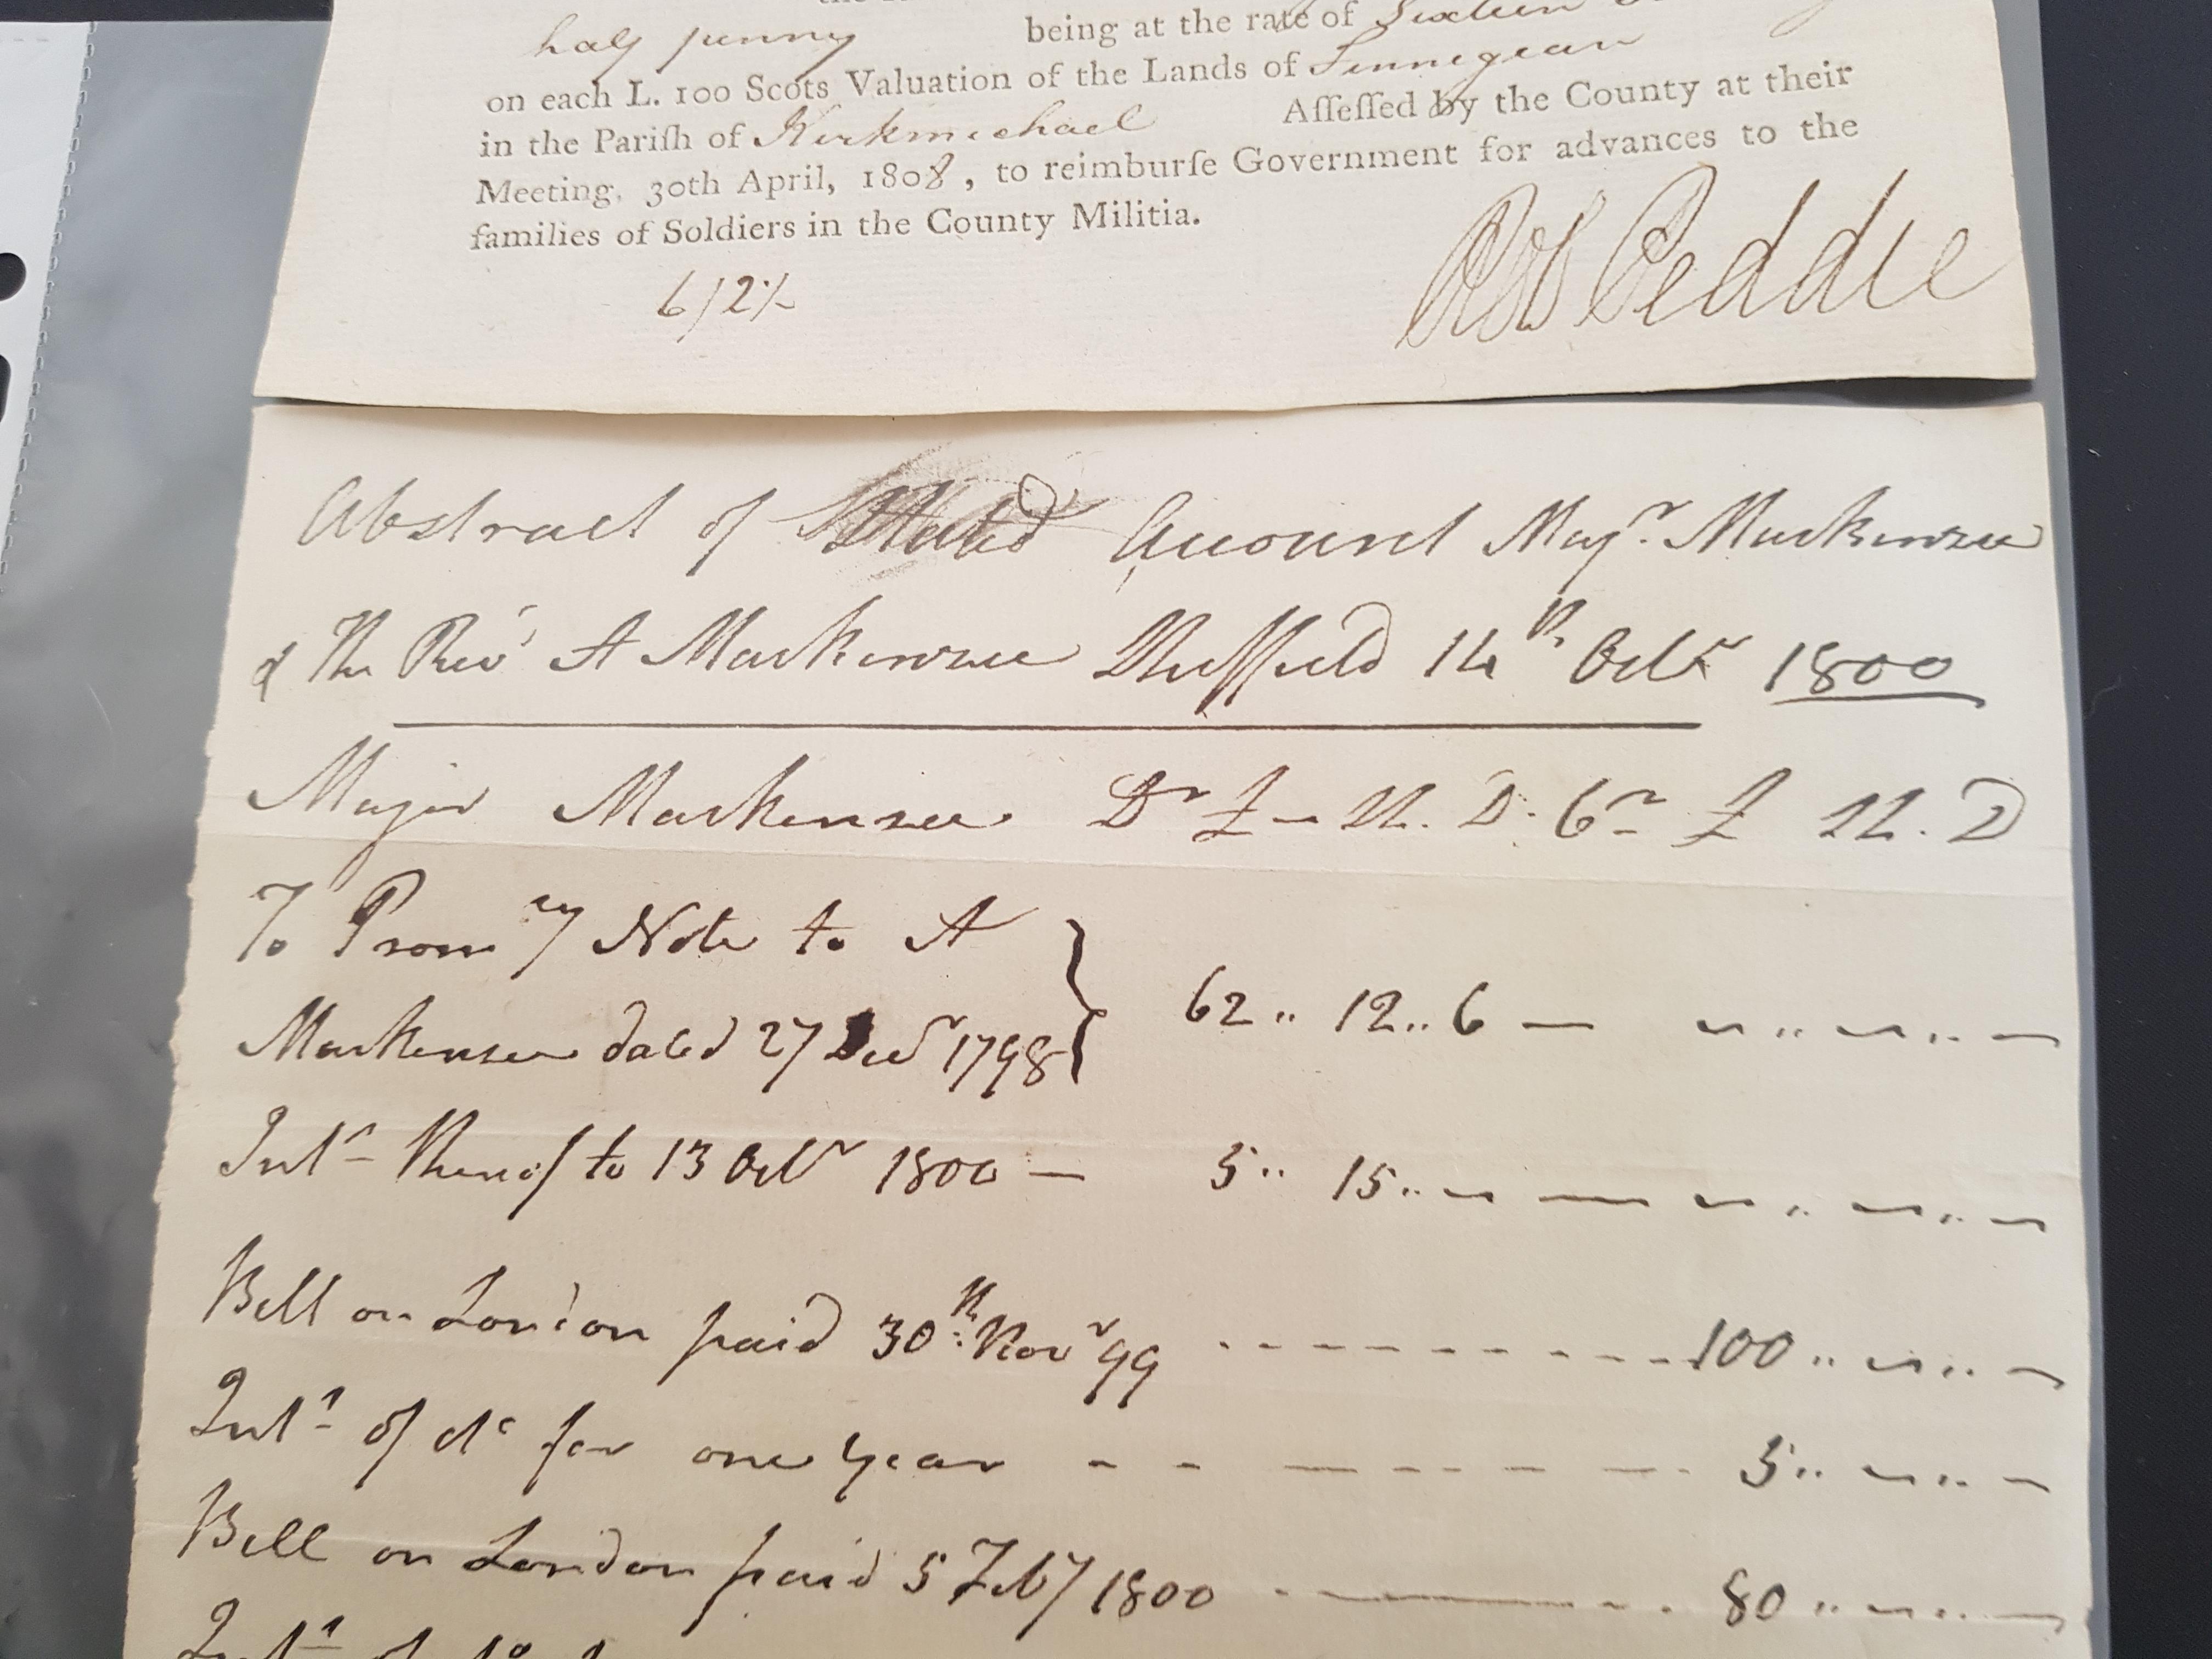 half penny being at the rate of Sixteen
on each L. 100 Scots Valuation of the Lands of Finnegean
in the Pariſh of Kirkmichael Aſſeſſed by the County at their
Meeting, 30th April, 1808, to reimburſe Government for advances to the
families of Soldiers in the County Militia.
6/2½
Rob Peddie
Abstract of Stated Account Majr. Mackenzie
& The Revd A Mackenzie Sheffield 14th Octr 1800
Major Mackenzie Dr £ - S. D. Cr £ S. D
To Promry Note to A
Mackenzie dated 27 Decr 1798 } 62 „ 12 „ 6 — „ „ —
Intt thereof to 13 Octr 1800 — 5 „ 15 „ — — „ „ —
Bill on London paid 30th Novr 99 - - - - - - - - 100 „ „ —
Intt of do for one Year - - - - - - - 5 „ „ —
Bill on London paid 5 Feby 1800 - — - - 80 „ „ —
Intt of do